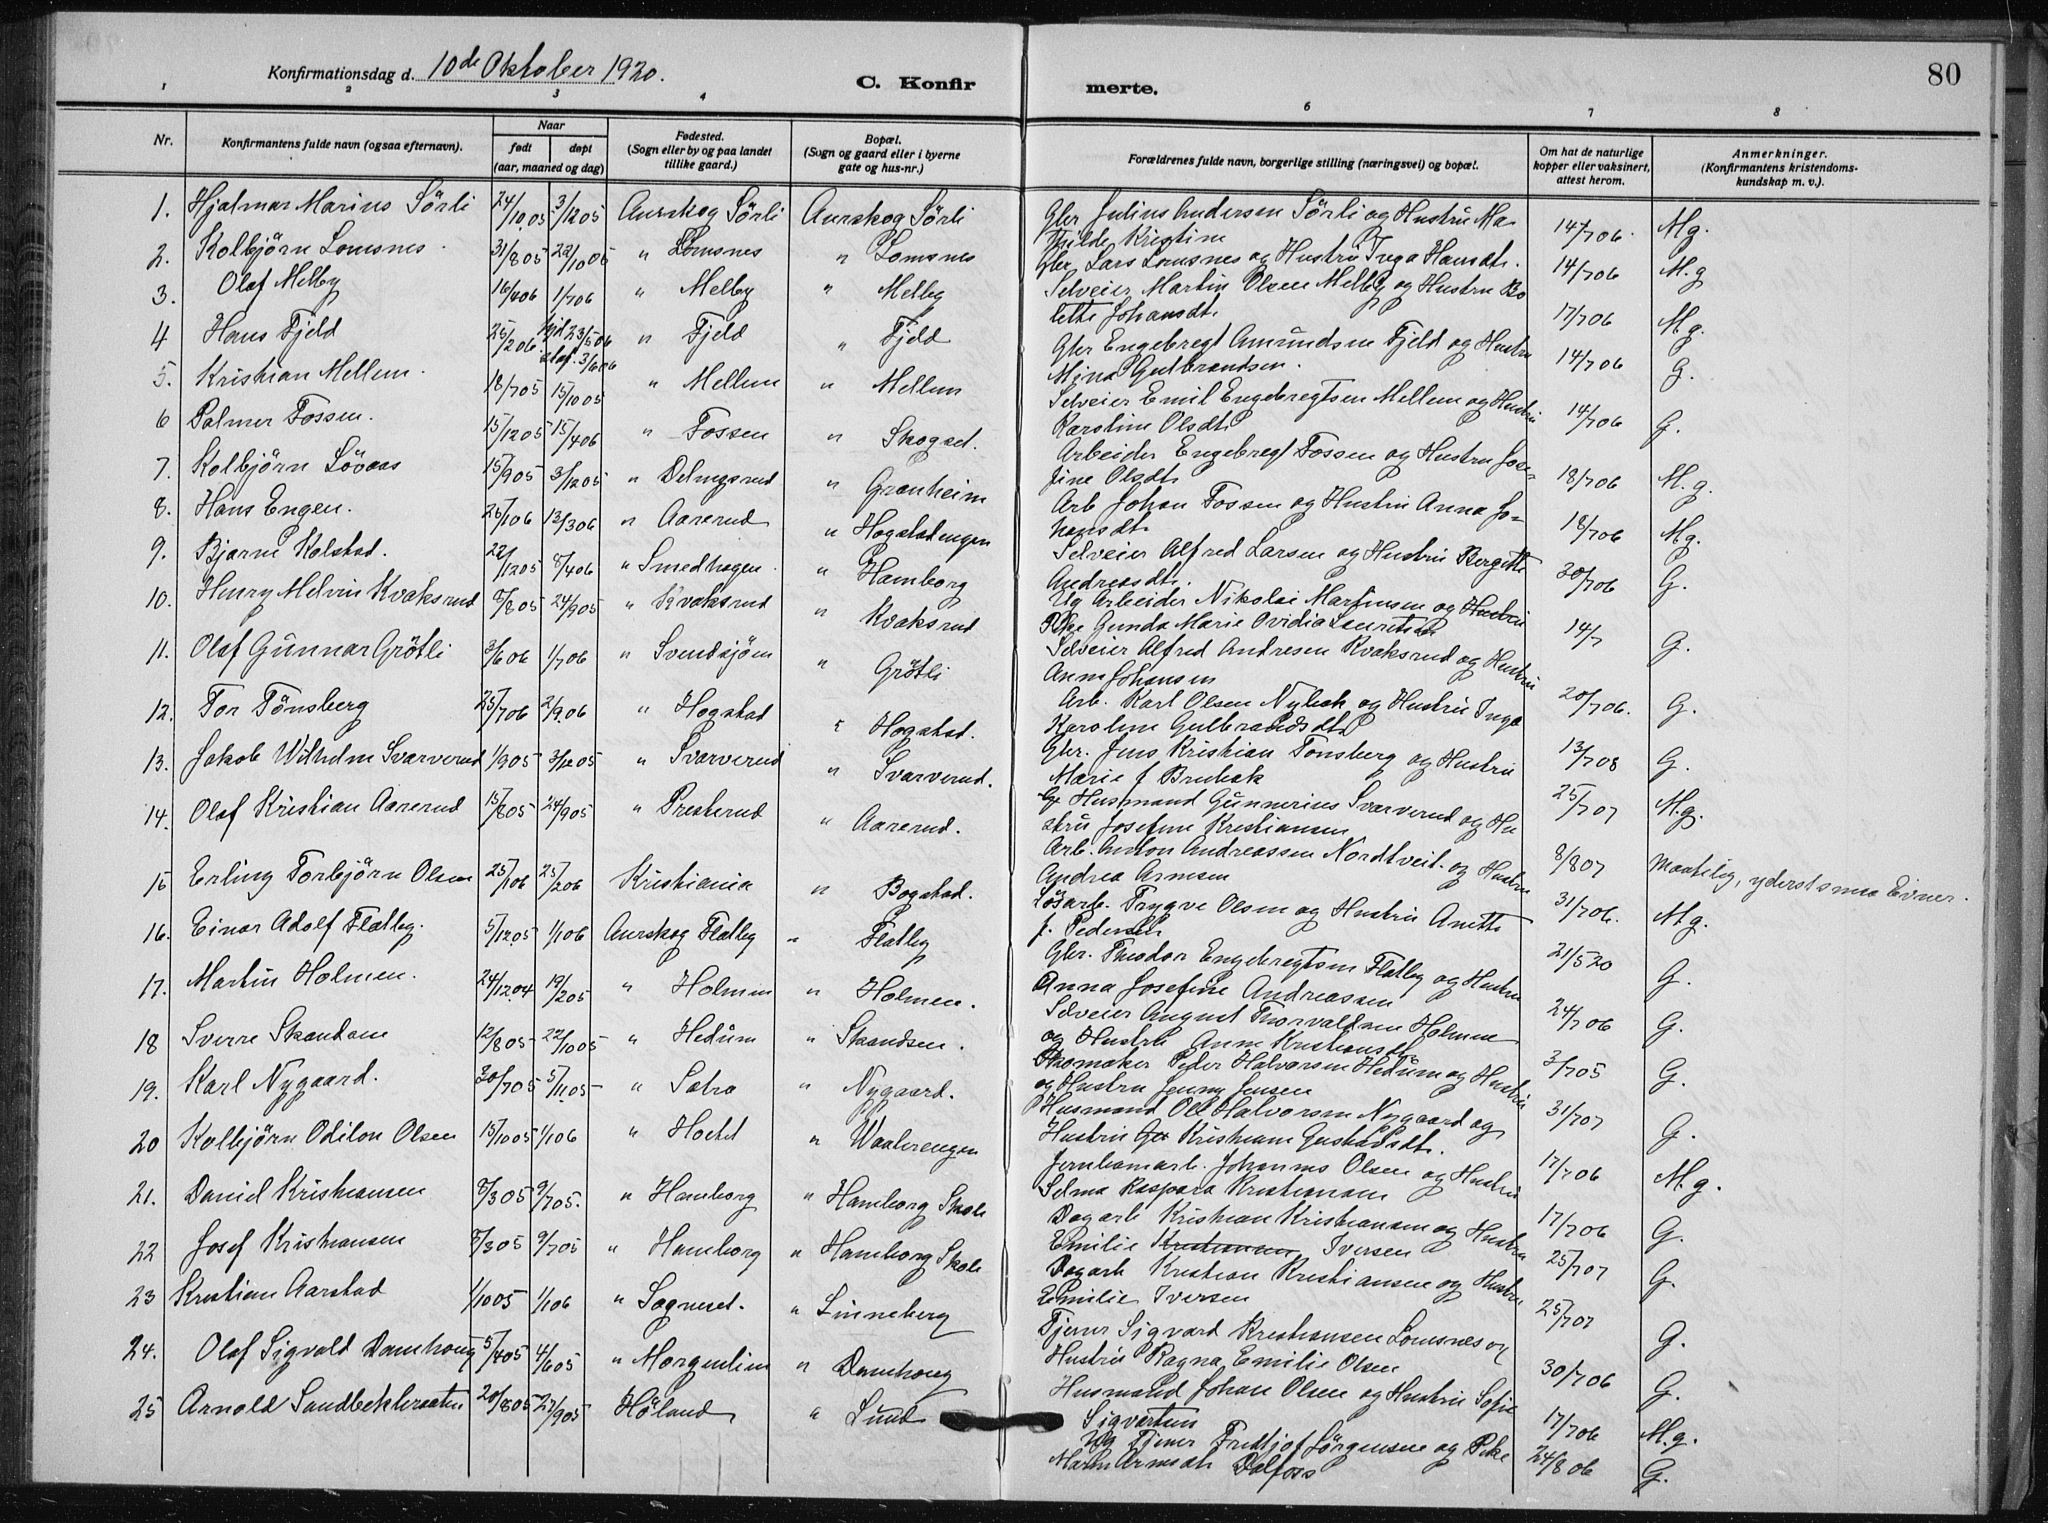 80
Konfirmationsdag d. 10de Oktober 1920.
C. Konfir merte.
1 2 3 4 6 7 8
Nr. Konfirmantens fulde navn (ogsaa efternavn). Naar født døpt (aar, maaned og dag) Fødested. (Sogn eller by og paa landet tillike gaard.) Bopæl. (Sogn og gaard eller i byerne gate og hus-nr.) Forældrenes fulde navn, borgerlige stilling (næringsvei) og bopæl. Om hat de naturlige kopper eller vaksinert, attest herom. Anmerkninger. (Konfirmantens kristendomskundskap m. v.).
1. Hjalmar Marius Sörli 24/10.05 3/12 05 Aurskog Sörli Aurskog Sörli Gbr Julius Andersen Sörli og Hustru Ma-
thilde Kristine 14/7 06. M.g.
2. Kolbjörn Lomsnes. 31/8 05 22/10 05 " Lomsnes " Lomsnes Gbr. Lars Lomsnes og Hustru Inga Hansdt. 14/7 06 M.g
3. Olaf Melby 16/4 06 1/7 06 " Melby " Melby Selveier Martin Olsen Melby og Hustru Bo
lette Johansdt. 17/7 06 M.g.
4 Hans Fjeld 25/2 06. 23/5 06 3/6 06 " Fjeld " Fjeld Gbr Engebregt Amundsen Fjeld og Hustru
Mina Gulbrandsen. 14/7 06 G.
5. Kristian Mellem. 18/7 05 15/10 05 " Mellem " Mellem Selveier Emil Engebregtsen Mellem og Hustru
Karoline Olsdt 14/7 06 G.
6 Palmer Fossen. 15/12 05 15/4 06 " Fossen " Skogset. Arbeider Engebregt Fossen og Hustru Jose-
fine Olsdt. 18/7 06 M.g.
7. Kolbjörn Lövaas 15/9 05 3/12 05 " Delingsrud " Granheim Arb Johan Fossen og Hustru Anna Jo-
hansdt. 18/7 06 M.g.
8. Hans Engen. 25/1 06 13/3 06 " Aarerud " Hogstadengen Selveier Alfred Larsen og Hustru Bergitte
Andreasdt. 30/7 06 G.
9. Bjarne Kolstad. 22/12 05 8/4 06 " Smedhagen. " Hamborg Ug Arbeider Nikolai Martinsen og Hustru
Pike Gunda Marie Ovidia Lauritsen 14/7 G.
10. Henry Melvin Kvaksrud 8/8 05 24/9 05 " Kvaksrud " Kvaksrud Selveier Alfred Andresen Kvaksrud og Hustru
Anna Johansen 20/7 06. G.
11. Olaf Gunnar Grötli 3/6 06 1/7 06 " Svendsjöen " Grötli Arb. Karl Olsen Nybak og Hustru Inga
Karoline Gulbrandsdt. 13/7 08 G.
12. Tor Tönsberg 25/7 06 2/9.06 " Hogstad " Hogstad. Gbr. Jens Kristian Tönsberg og Hustru
Marie f Brubak 25/7 07 M.g.
13. Jakob Wilhelm Svarverud 1/9 05 3/12 05 " Svarverud " Svarverud. Husmand Gunnerius Svarverud og Hu
stru Josefine Kristiansen 8/8 07 Maatelig, yderst smaa Evner.
14. Olaf Kristian Aarerud 15/8 05 24/9 05 " Presterud " Aarerud. Arb. Anton Andreassen Nordtveit. og Hustru
Andrea Arnesen 31/7 06. M.g.
15 Erling Torbjörn Olsen 25/1 06 25/2 06 Kristiania " Bogstad. Lösarb. Trygve Olsen og Hustru Anette
f. Pedersen 21/5 20 G.
16. Einar Adolf Flatby. 5/12 05 1/1 06 Aurskog Flatby " Flatby Gbr. Theodor Engebregtsen Flatby og Hustru
Anna Josefine Andreassen 24/7 06 G.
17. Martin Holmen. 24/12 04 19/2 05 " Holmen " Holmen. Selveier August Thorvaldsen Holmen
og Hustru Anne Kristiansdt. 3/7 05 G.
18 Sverre Skandsen 12/8 05 22/10 05 " Hedum " Skandsen. Skomaker Peder Halvorsen Hedum og Hustru
og Hustru Jenny Jensen 31/7 07 G.
19. Karl Nygaard. 30/7 05 5/11.05 " Sabro " Nygaard. Husmand Ole Halvorsen Nygaard og
Hustru Kristiane Gustavsdt. 17/7 06 M.g.
20 Kolbjörn Odilon Olsen 15/10 05 1/1 06 " Hoctet " Waalerengen Jernbanearb. Johannes Olsen og Hustru
Selma Kaspara Kristiansen 17/7 06 G.
21. Daniel Kristiansen 8/3 05 9/7 05. " Hamborg " Hamborg Skole Dagarb Kristian Kristiansen og Hustru
Emilie Kristiansen Iversen 25/7 07 G.
22 Josef Kristiansen 8/3 05 9/7 05 " Hamborg " Hamborg Skole Dagarb Kristian Kristiansen og Hustru
Emilie Iversen 25/7 07 G.
23 Kristian Aarstad 1/10 05 1/1 06 " Sogneset. " Linneberg Tjener Sigvard Kristiansen Lomsnes og
Hustru Ragna Emilie Olsen 30/7 06 G.
24. Olaf Sigvald Damhaug 5/4 05 4/6 05 " Morgenlien " Damhaug Husmand Johan Olsen og Hustru Sofie
Sigvartsen 17/7 06 M.g.
25 Arnold Sandbækbraaten 20/8 05 27/9 05 Höland " Lund Ug Tjener Fredtjof Jörgensen og Pike
Maren Arnesdt. Dalfoss 24/8 06 G.